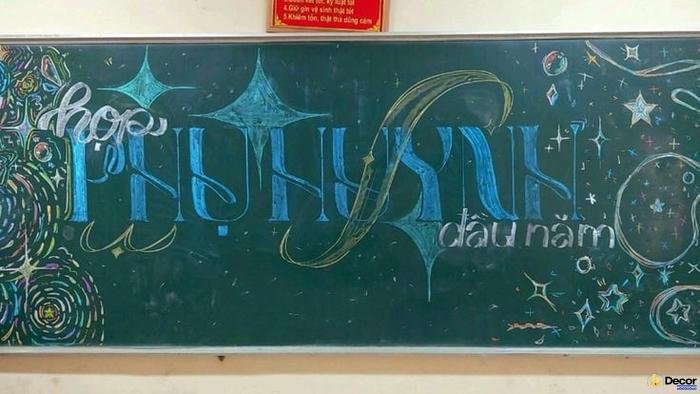 4.Giữ gìn vệ sinh thật tốt
5.Khiêm tốn, thật thà dũng cảm
họp
PHỤ HUYNH
đầu năm
Decor